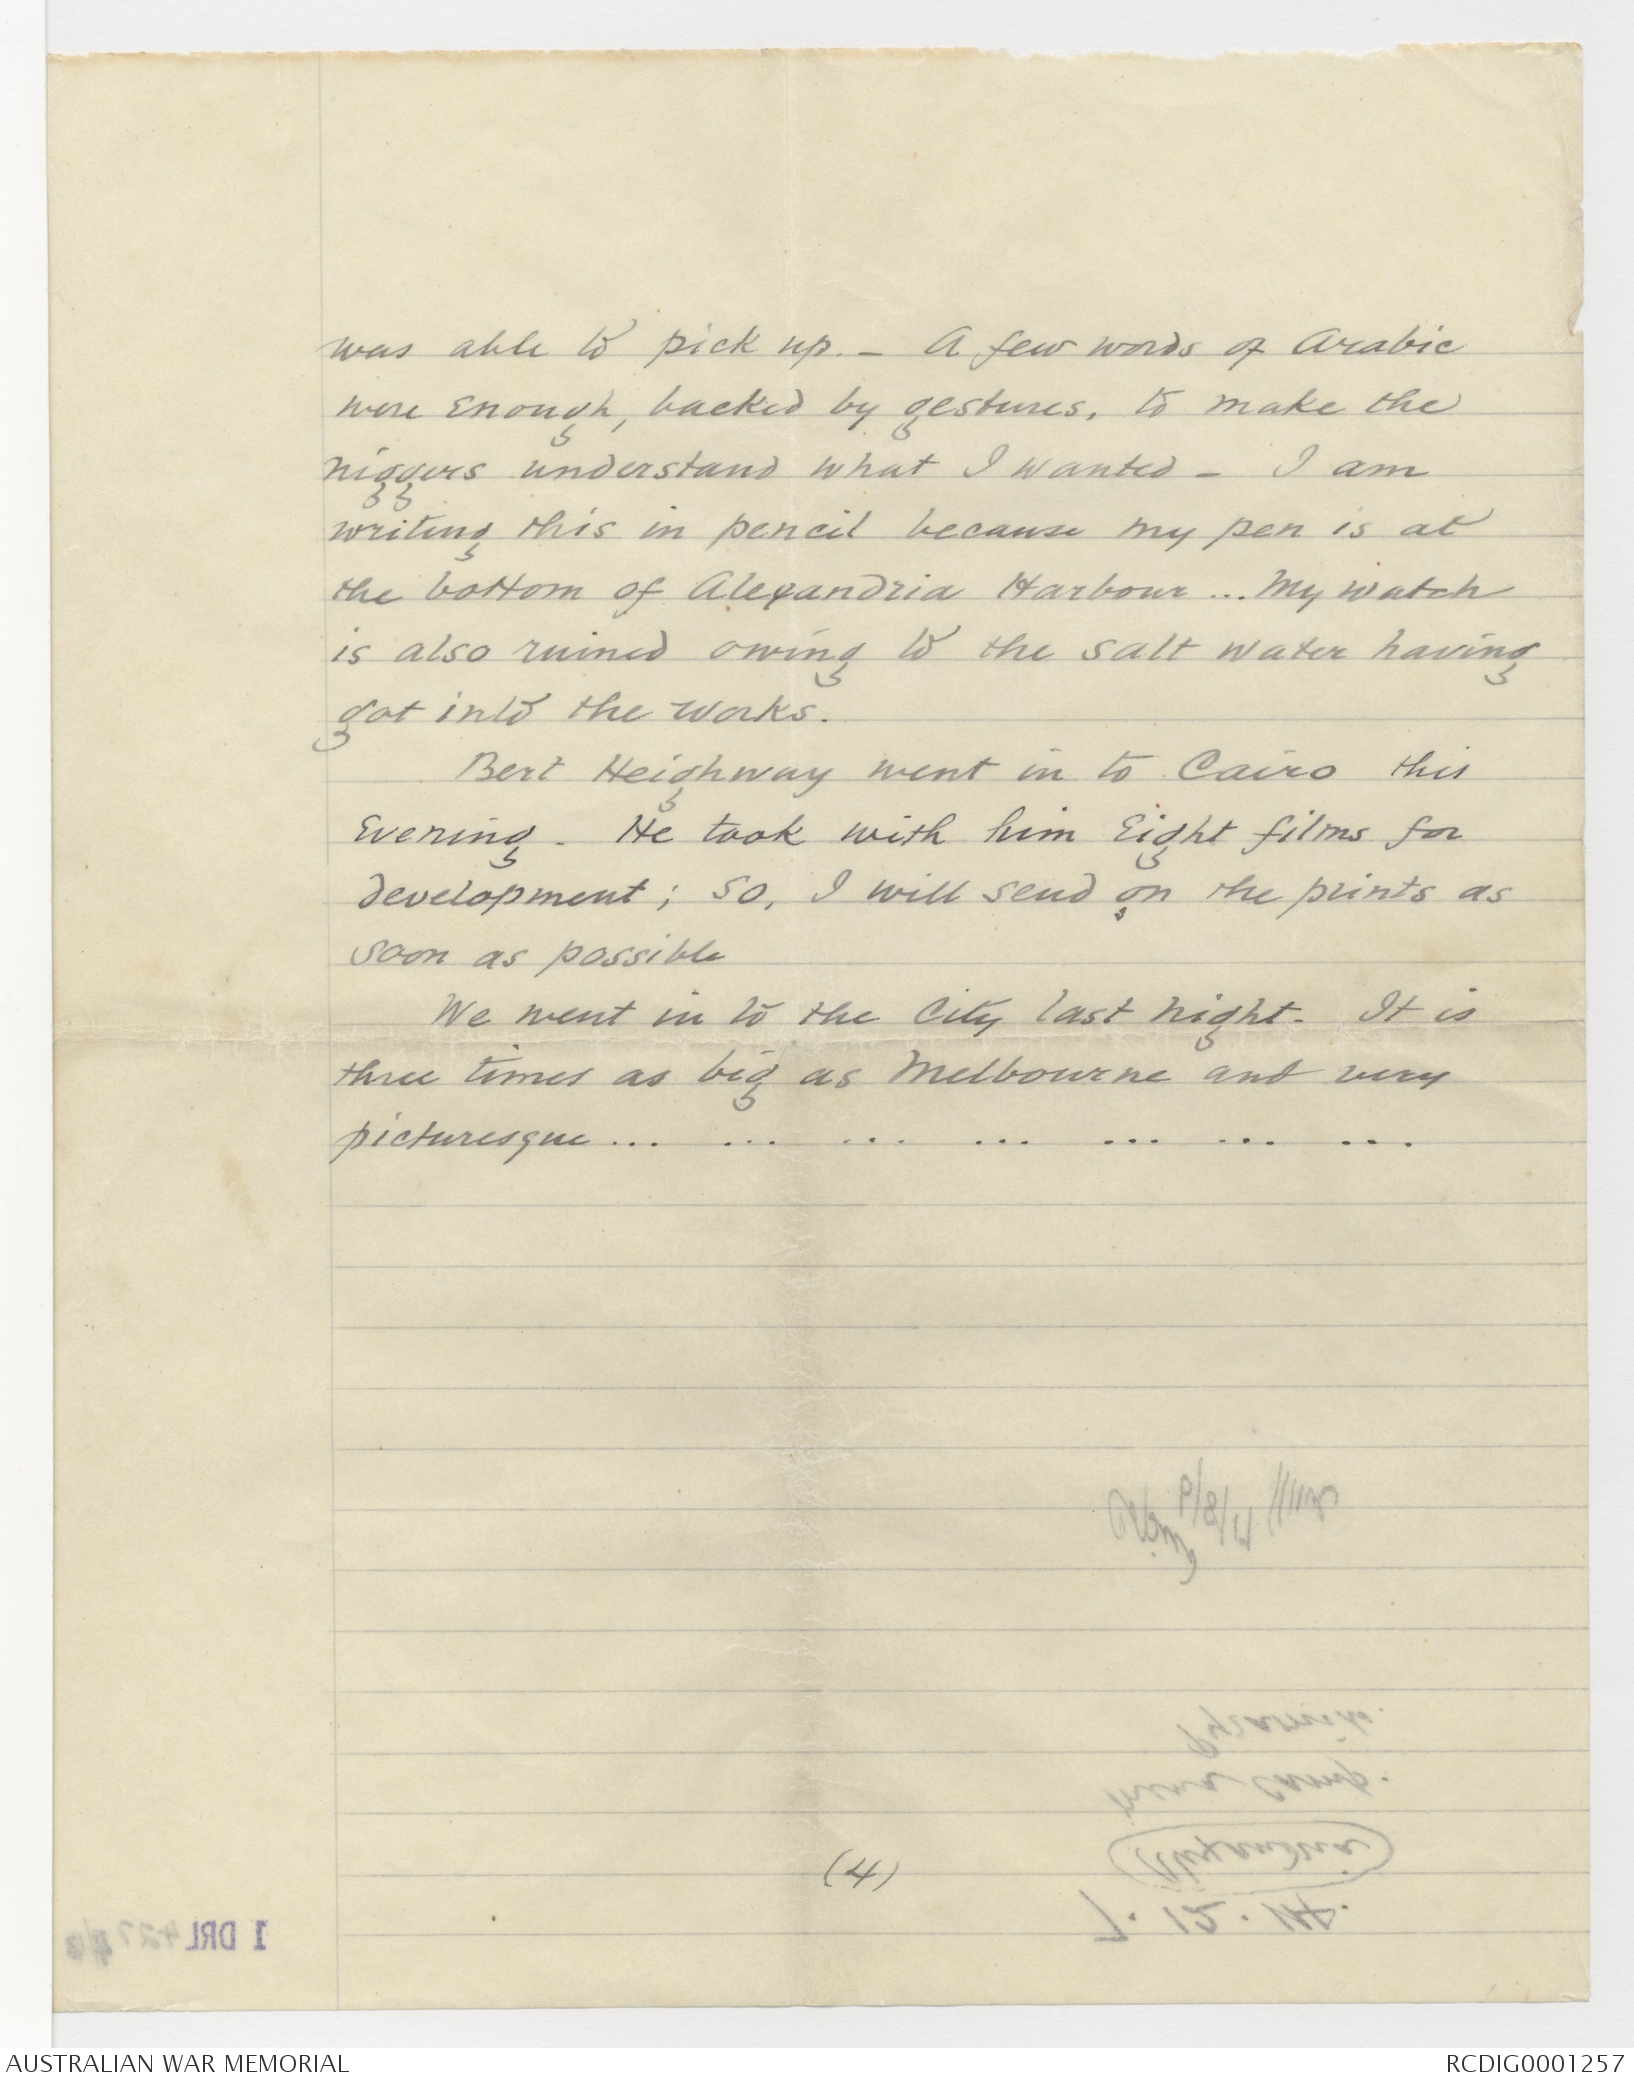 was able to pick up. - A few words of Arabic
were enough, backed by gestures, to make the
niggers understand what I wanted - I am
writing this in pencil because my pen is at
the bottom of Alexandria Harbour ... My watch
is also ruined owing to the salt water having
got into the works.
Bert Heighway went in to Cairo this
Evening - He took with him Eight films for
development; so, I will send on the prints as
soon as possible
We went in to the City last night - It is
three times as big as Melbourne and very
picturesque ... ... ... ... ... ... ...
Pyramids.
Mena Camp.
Alexandria
(4)
7.12.14.
1 DRL 427
AUSTRALIAN WAR MEMORIAL
RCDIG0001257